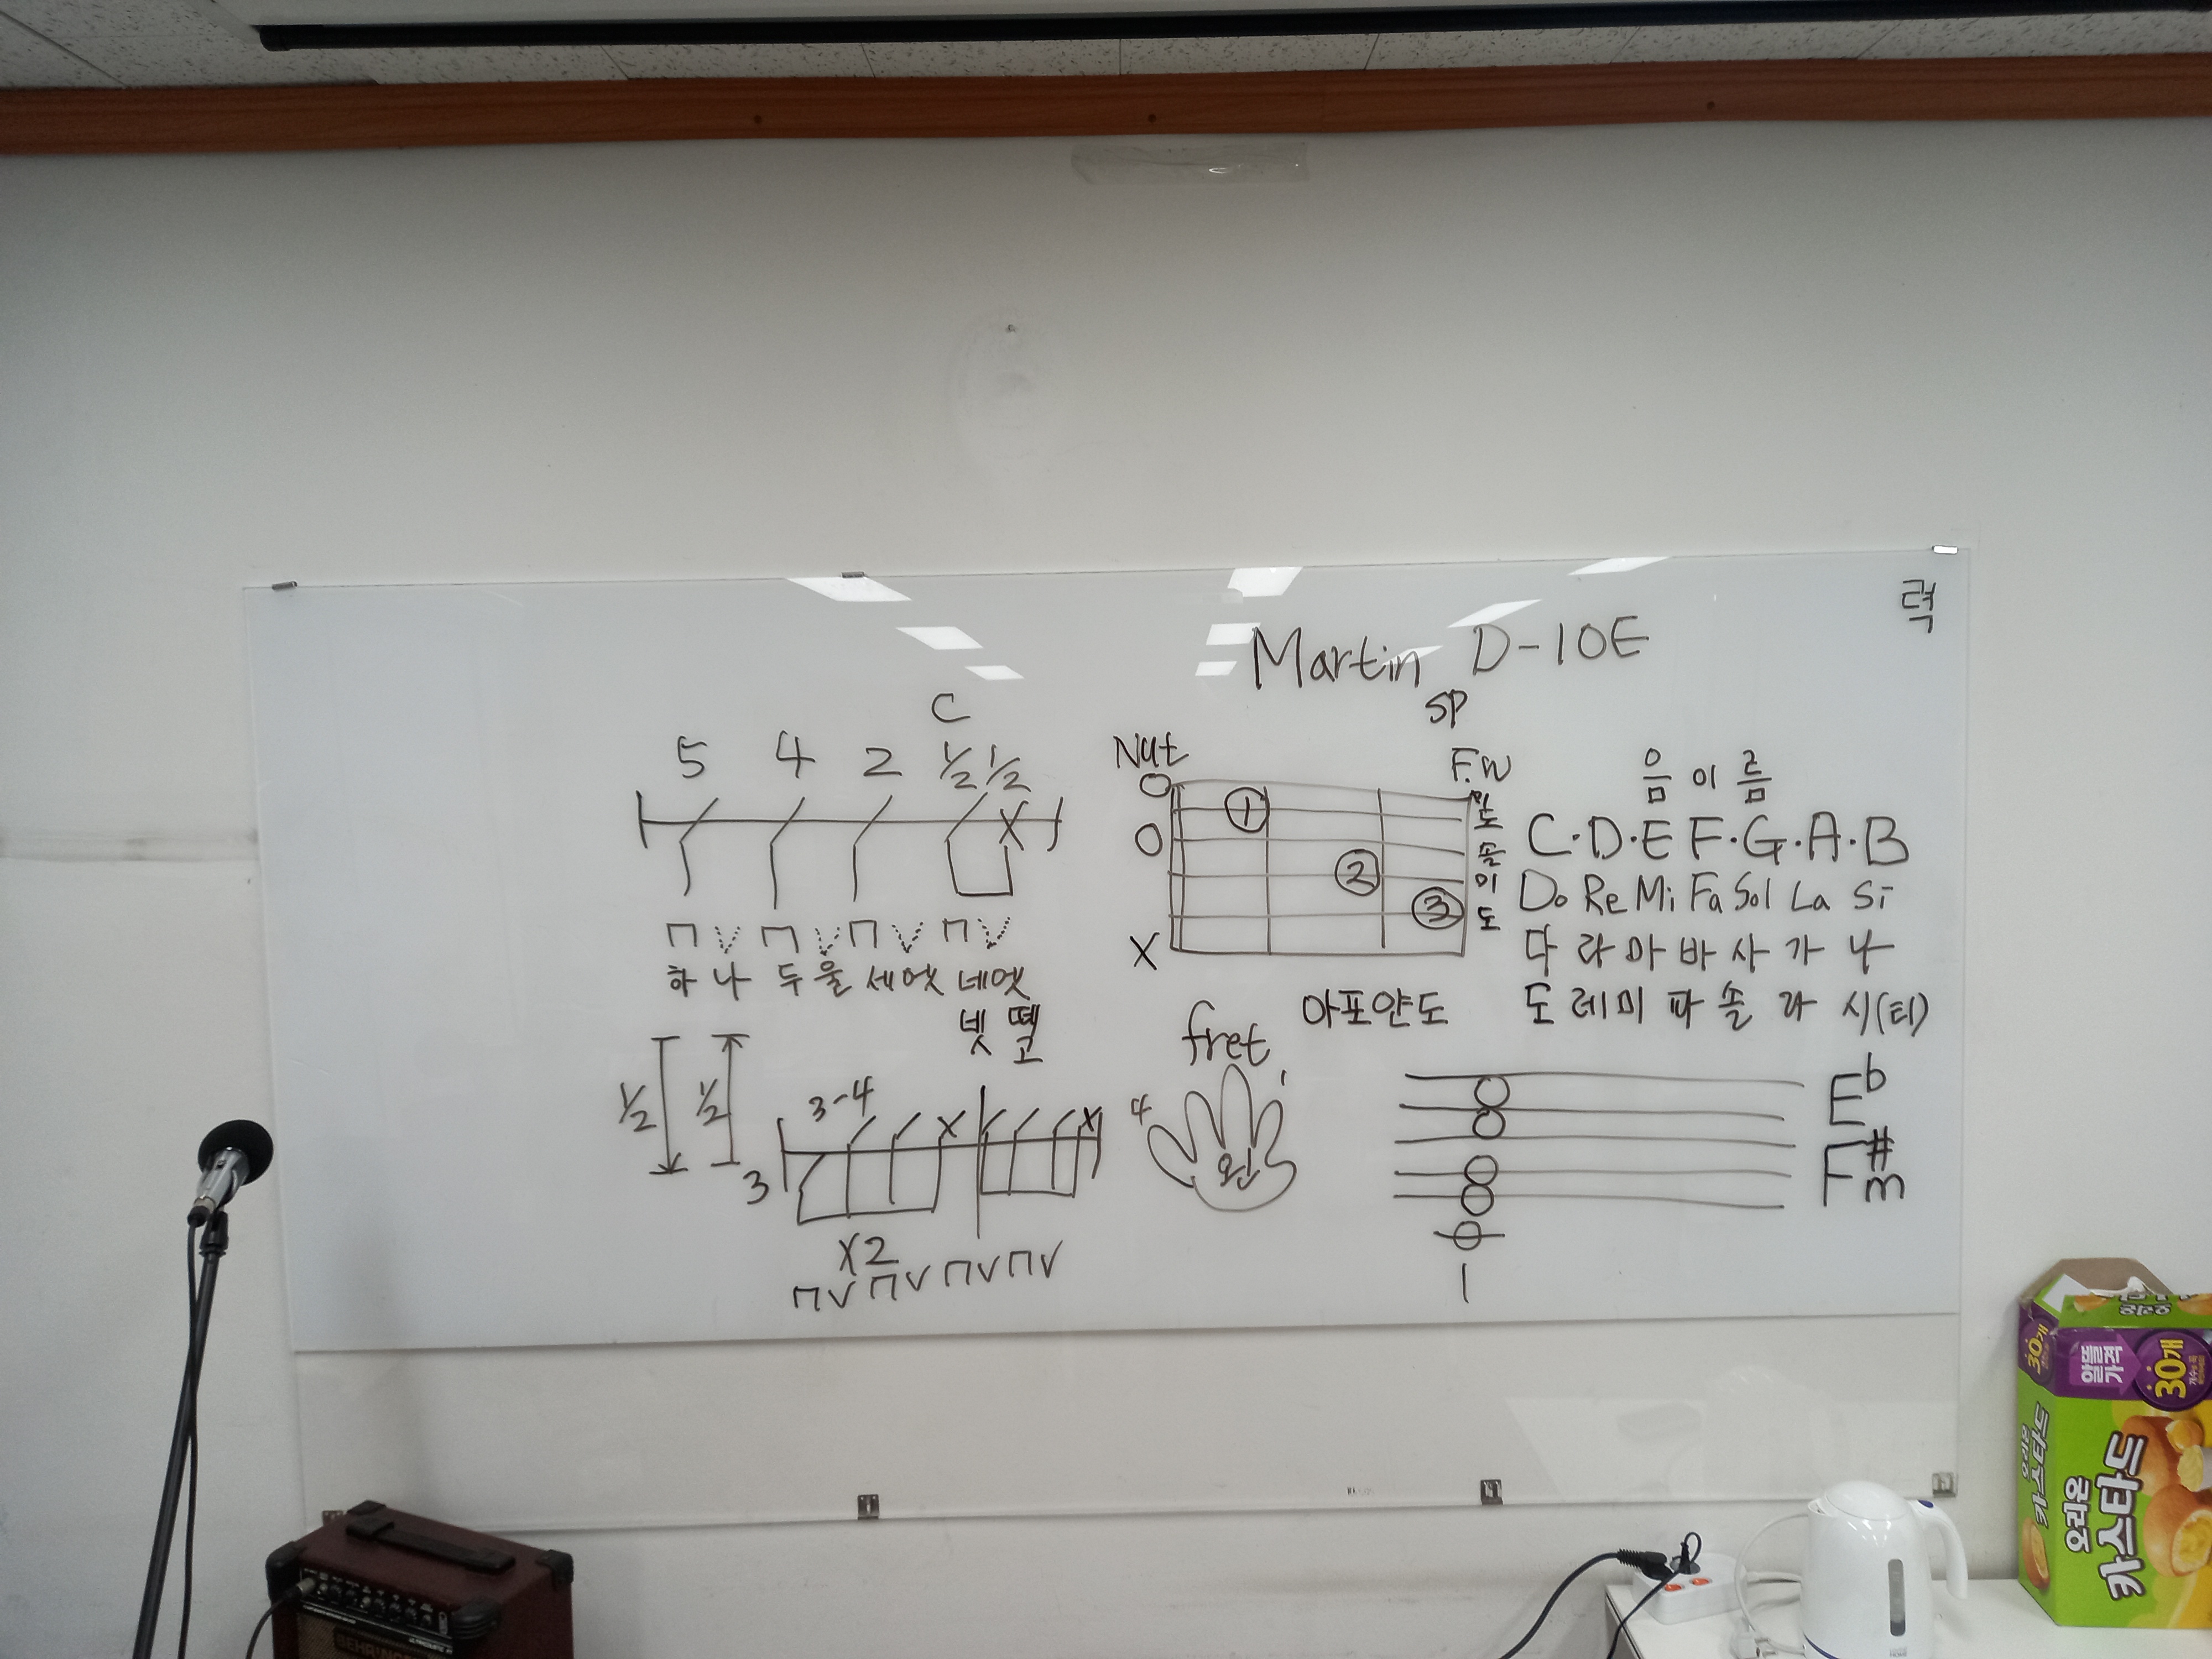 력
Martin D-10E
SP
C
5 4 2 1/2 1/2
X
⊓ V ⊓ V ⊓ V ⊓ V
하나 두울 세엣 네엣
넷 뗄
고
1/2 1/2
3-4
X X
3
X2
⊓V ⊓V ⊓V ⊓V
Nut F.W
O
O
X
1
2
3
미
도
솔
미
도
아포얀도
fret
4 1
왼
음이름
C·D·E F·G·A·B
Do Re Mi Fa Sol La Si
다 라 마 바 사 가 나
도 레 미 파 솔 라 시(티)
E♭
F#m
1
BEHRINGER
30개
알뜰가격
30개
오리온
카스타드
오리온
카스타드